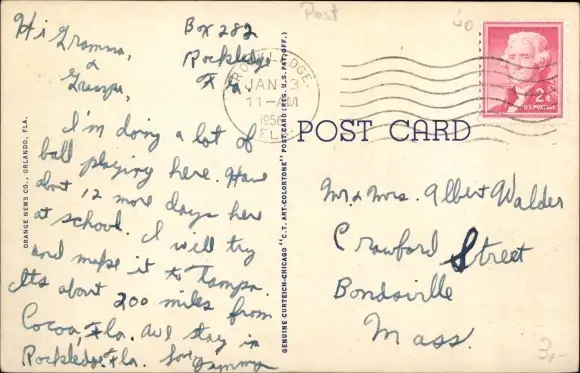 Hi Gramma,
&
Grampa,
Box 282
Rockledge
Fla
I'm doing a lot of
ball playing here. Have
about 12 more days here
at school. I will try
and make it to Tampa.
Its about 200 miles from
Cocoa, Fla. We stay in
Rockledge, Fla. Love Sammy
ORANGE NEWS CO., ORLANDO, FLA.
GENUINE CURTEICH-CHICAGO "C.T. ART-COLORTONE" POST CARD (REG. U.S. PAT. OFF.)
Post
ROCKLEDGE,
JAN 3
11-AM
1956
FLA
2¢
U.S. POSTAGE
POST CARD
Mr & Mrs. Albert Walder
Crawford Street
Bondsville
Mass.
3,-